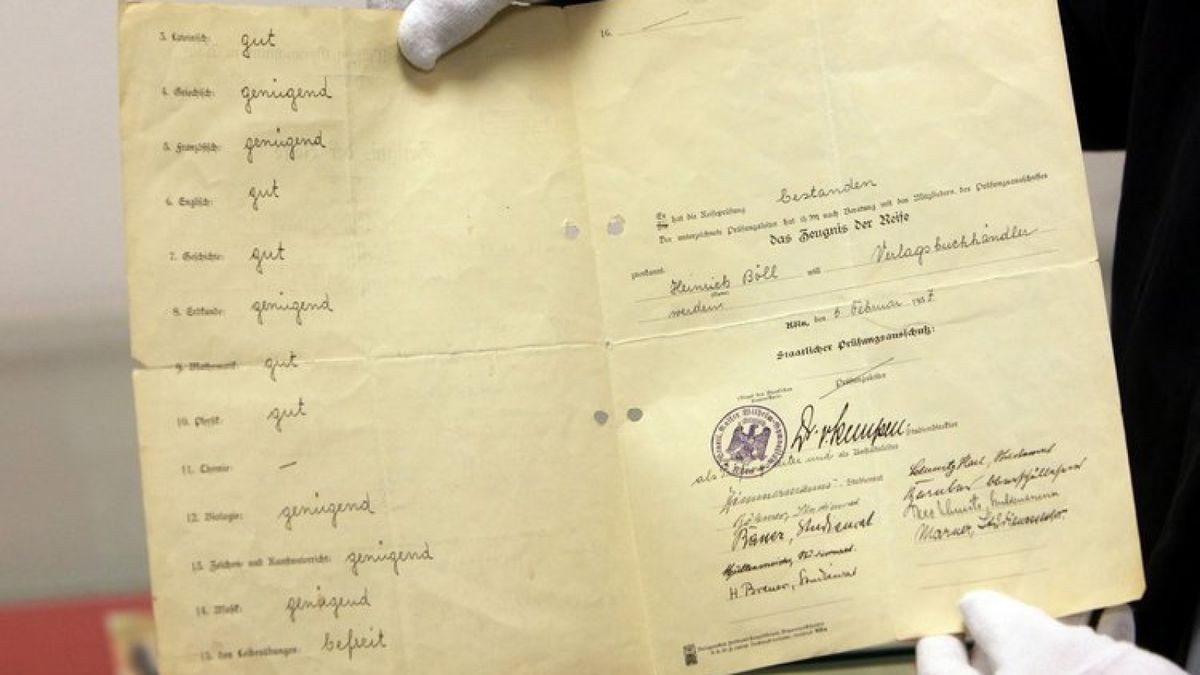 3. Lateinisch: gut
4. Griechisch: genügend
5. Französisch: genügend
6. Englisch: gut
7. Geschichte: gut
8. Erdkunde: genügend
9. Mathematik: gut
10. Physik: gut
11. Chemie: —
12. Biologie: genügend
13. Zeichen- und Kunstunterricht: genügend
14. Musik: genügend
15. den Leibesübungen: befreit
16.
Er hat die Reifeprüfung bestanden
Der unterzeichnete Prüfungsleiter hat ihm nach Beratung mit den Mitgliedern des Prüfungsausschusses
das Zeugnis der Reife
zuerkannt.
Heinrich Böll will Verlagsbuchhändler
(Name)
werden
Köln, den 6. Februar 1937
Staatlicher Prüfungsausschuß:
Prüfungsleiter
Dr. v. Kempen Studiendirektor
als und als
Zimmermann Studienrat
Studienrat
Bauer, Studienrat
H. Breuer, Studienrat